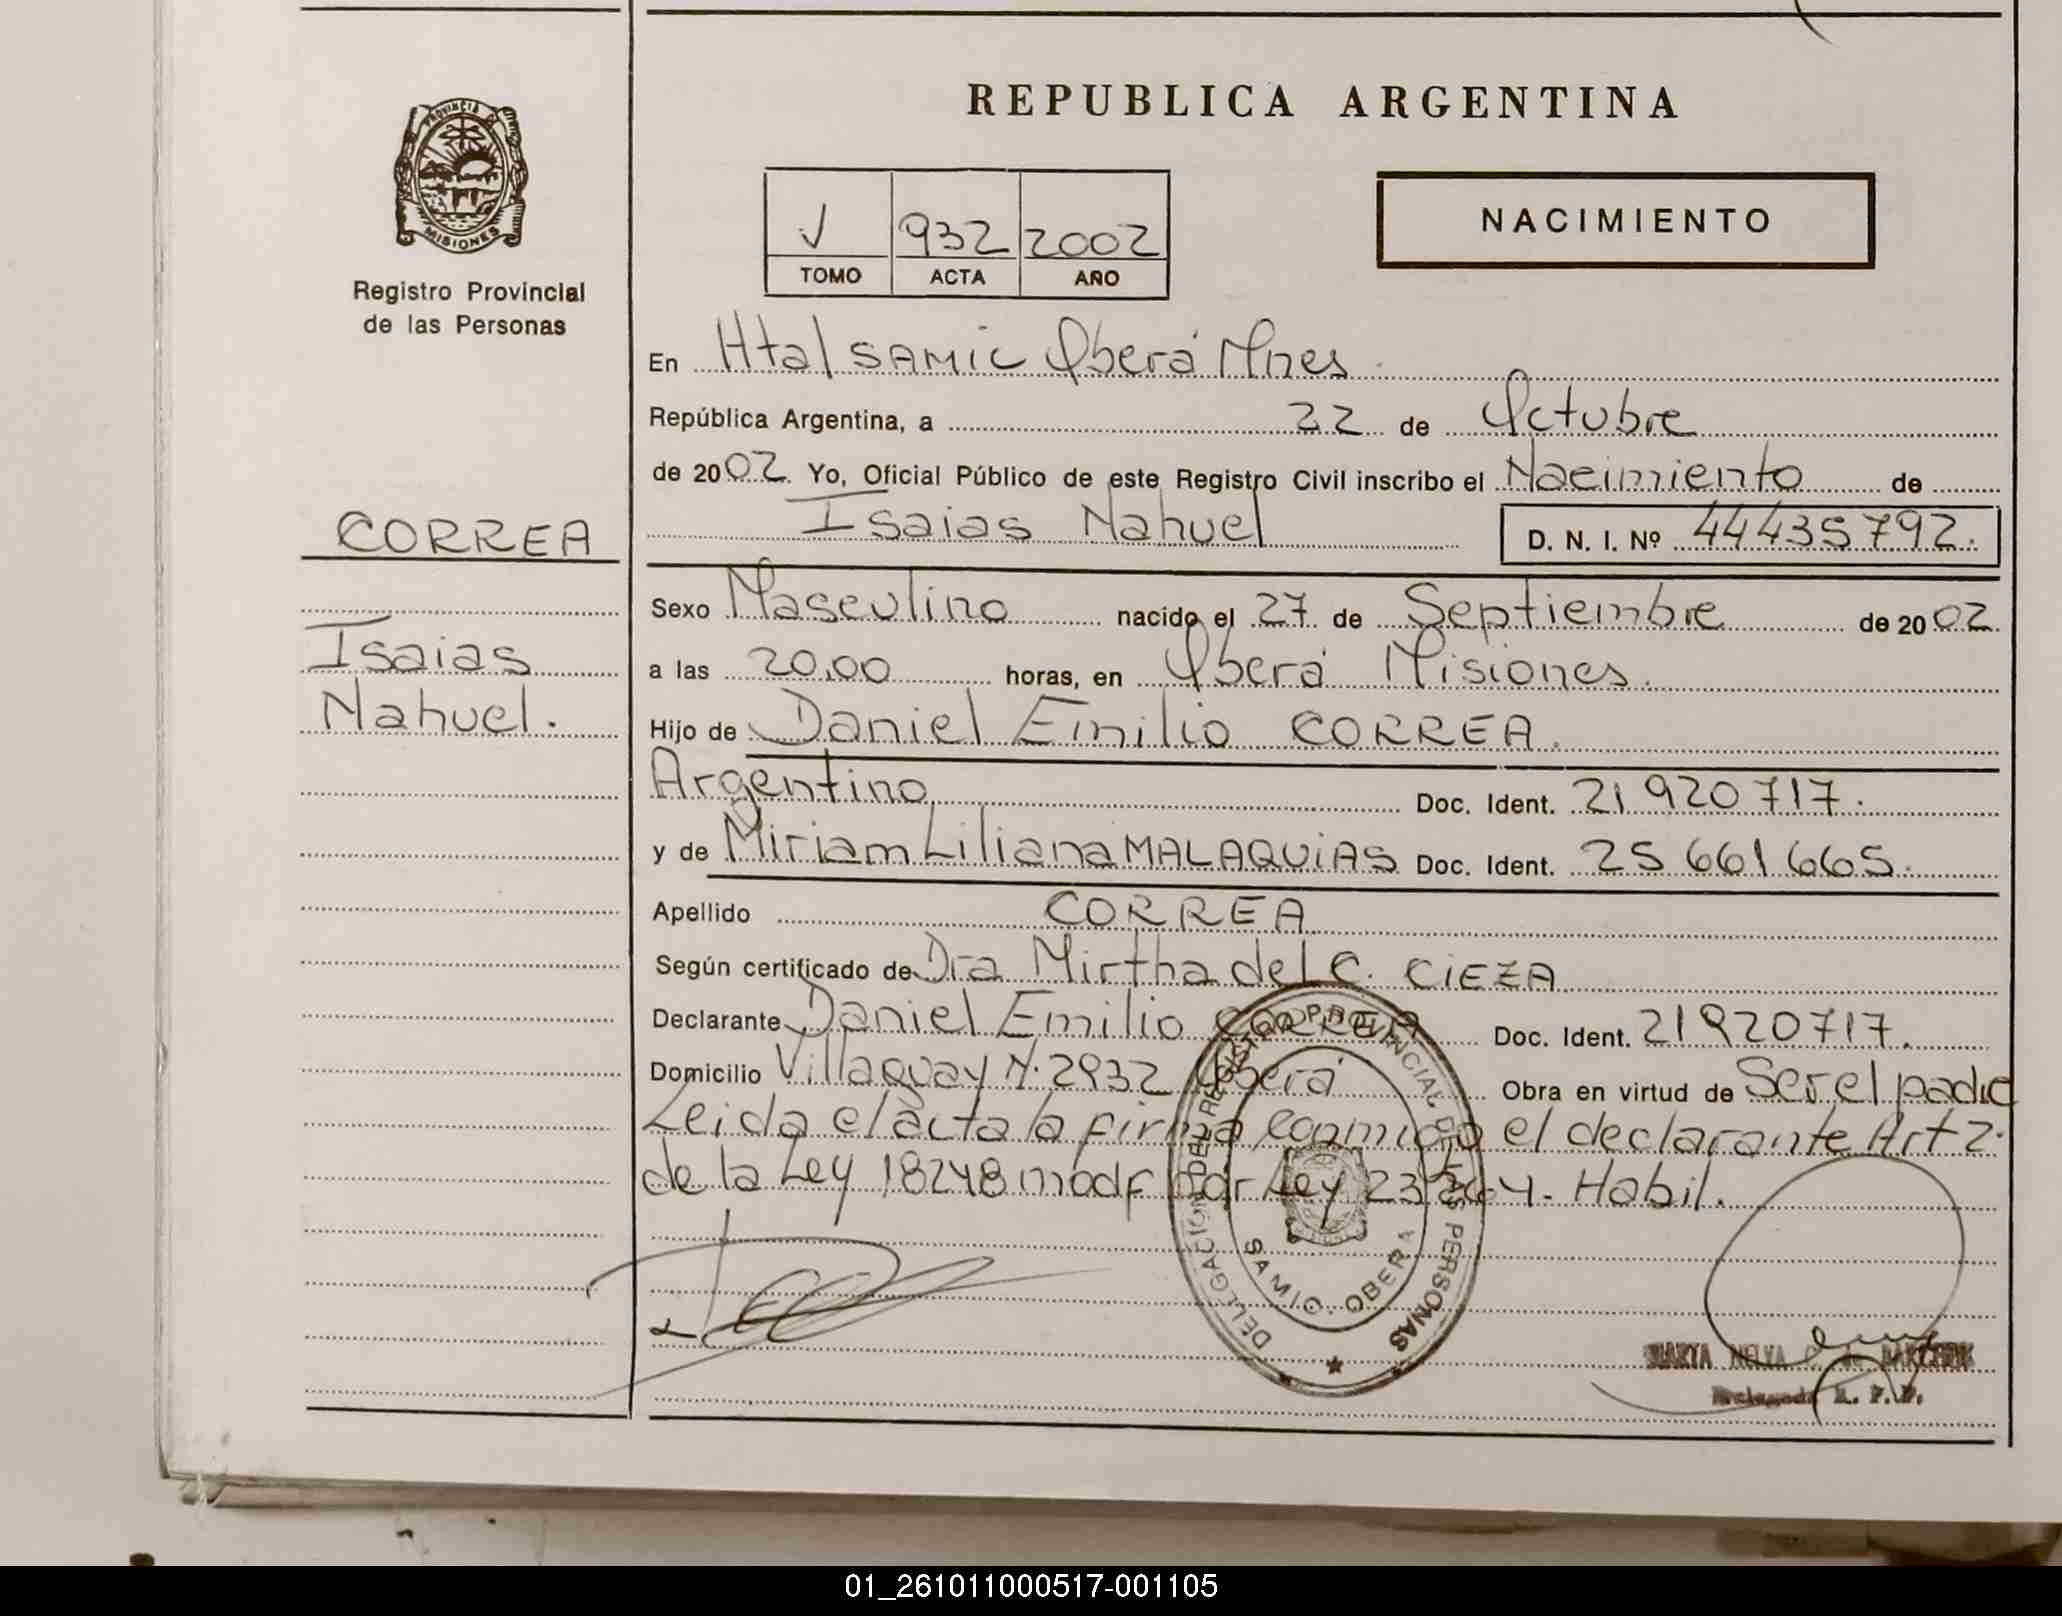 REPUBLICA ARGENTINA
PROVINCIA DE
MISIONES
Registro Provincial
de las Personas
V 932 2002
TOMO ACTA AÑO
NACIMIENTO
En Htal SAMIC Oberá Mnes.
República Argentina, a 22 de Octubre
de 2002. Yo, Oficial Público de este Registro Civil inscribo el Nacimiento de
Isaias Nahuel D. N. I. Nº 44435792.
CORREA
Isaias
Nahuel.
Sexo Masculino nacido el 27 de Septiembre de 2002
a las 20,00 horas, en Oberá Misiones.
Hijo de Daniel Emilio CORREA.
Argentino Doc. Ident. 21 920 717.
y de Miriam Liliana MALAQUIAS Doc. Ident. 25 661 665.
Apellido CORREA
Según certificado de Dra Mirtha del C. CIEZA
Declarante Daniel Emilio CORREA Doc. Ident. 21920717.
Domicilio Villaguay Nº 2932 Oberá Obra en virtud de Ser el padre
Leida el acta la firma conmigo el declarante Art 2.
de la Ley 18248 modf por Ley 23264. Habil.
DELEGACION DEL REGISTRO PROVINCIAL DE LAS PERSONAS
SAMIC. OBERA
MARTA NELVA
Delegada R. P. P.
01_261011000517-001105